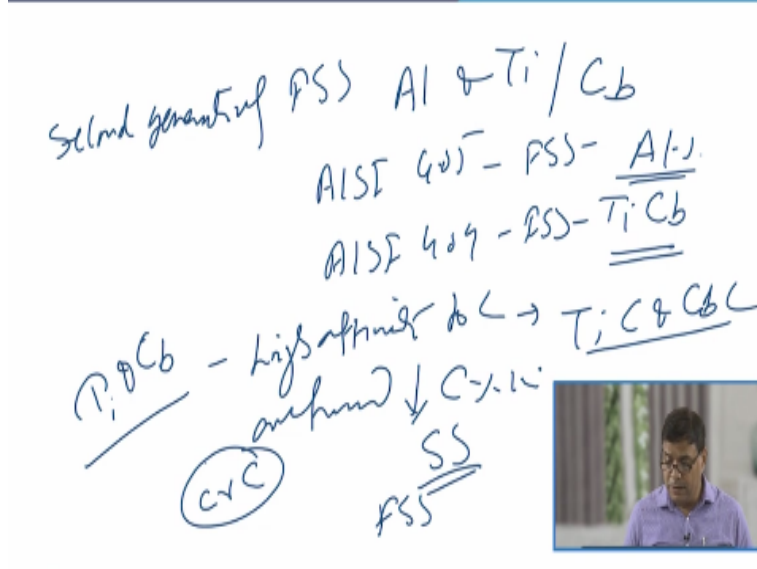 Second generation FSS Al & Ti / Cb
AISI 405 - FSS - Al
AISI 409 - FSS - Ti Cb
Ti & Cb - high affinity to C → TiC & CbC
↓ C %. in
CrC SS
FSS